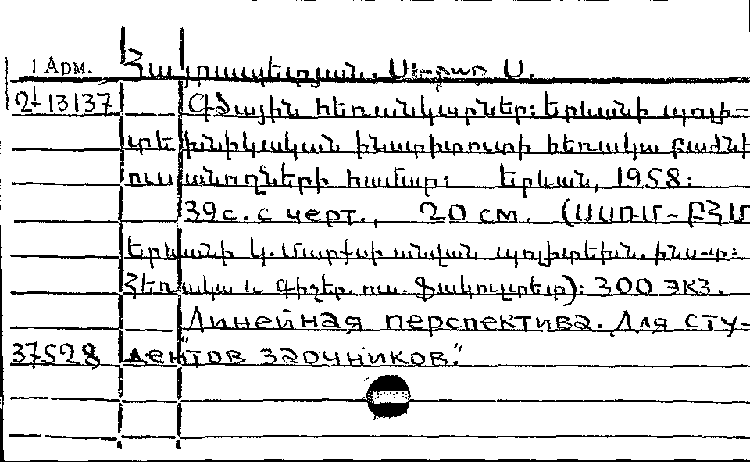 1 Арм. Հայրապետյան, Սեթրակ Ս.
2-13137 Գծային հեռանկարներ: Երևանի պոլի-
տեխնիկական ինստիտուտի հեռակա բաժնի
ուսանողների համար: Երևան, 1958:
39 с. с черт., 20 см. (ՍՍՌՄ-ԲՀՄ
Երևանի Կ. Մարքսի անվան պոլիտեխն. ինստ-ի:
Հեռակա և գիշեր. ուս. ֆակուլտետ): 300 экз.
"Линейная перспектива. Для сту-
37528 дентов заочников."